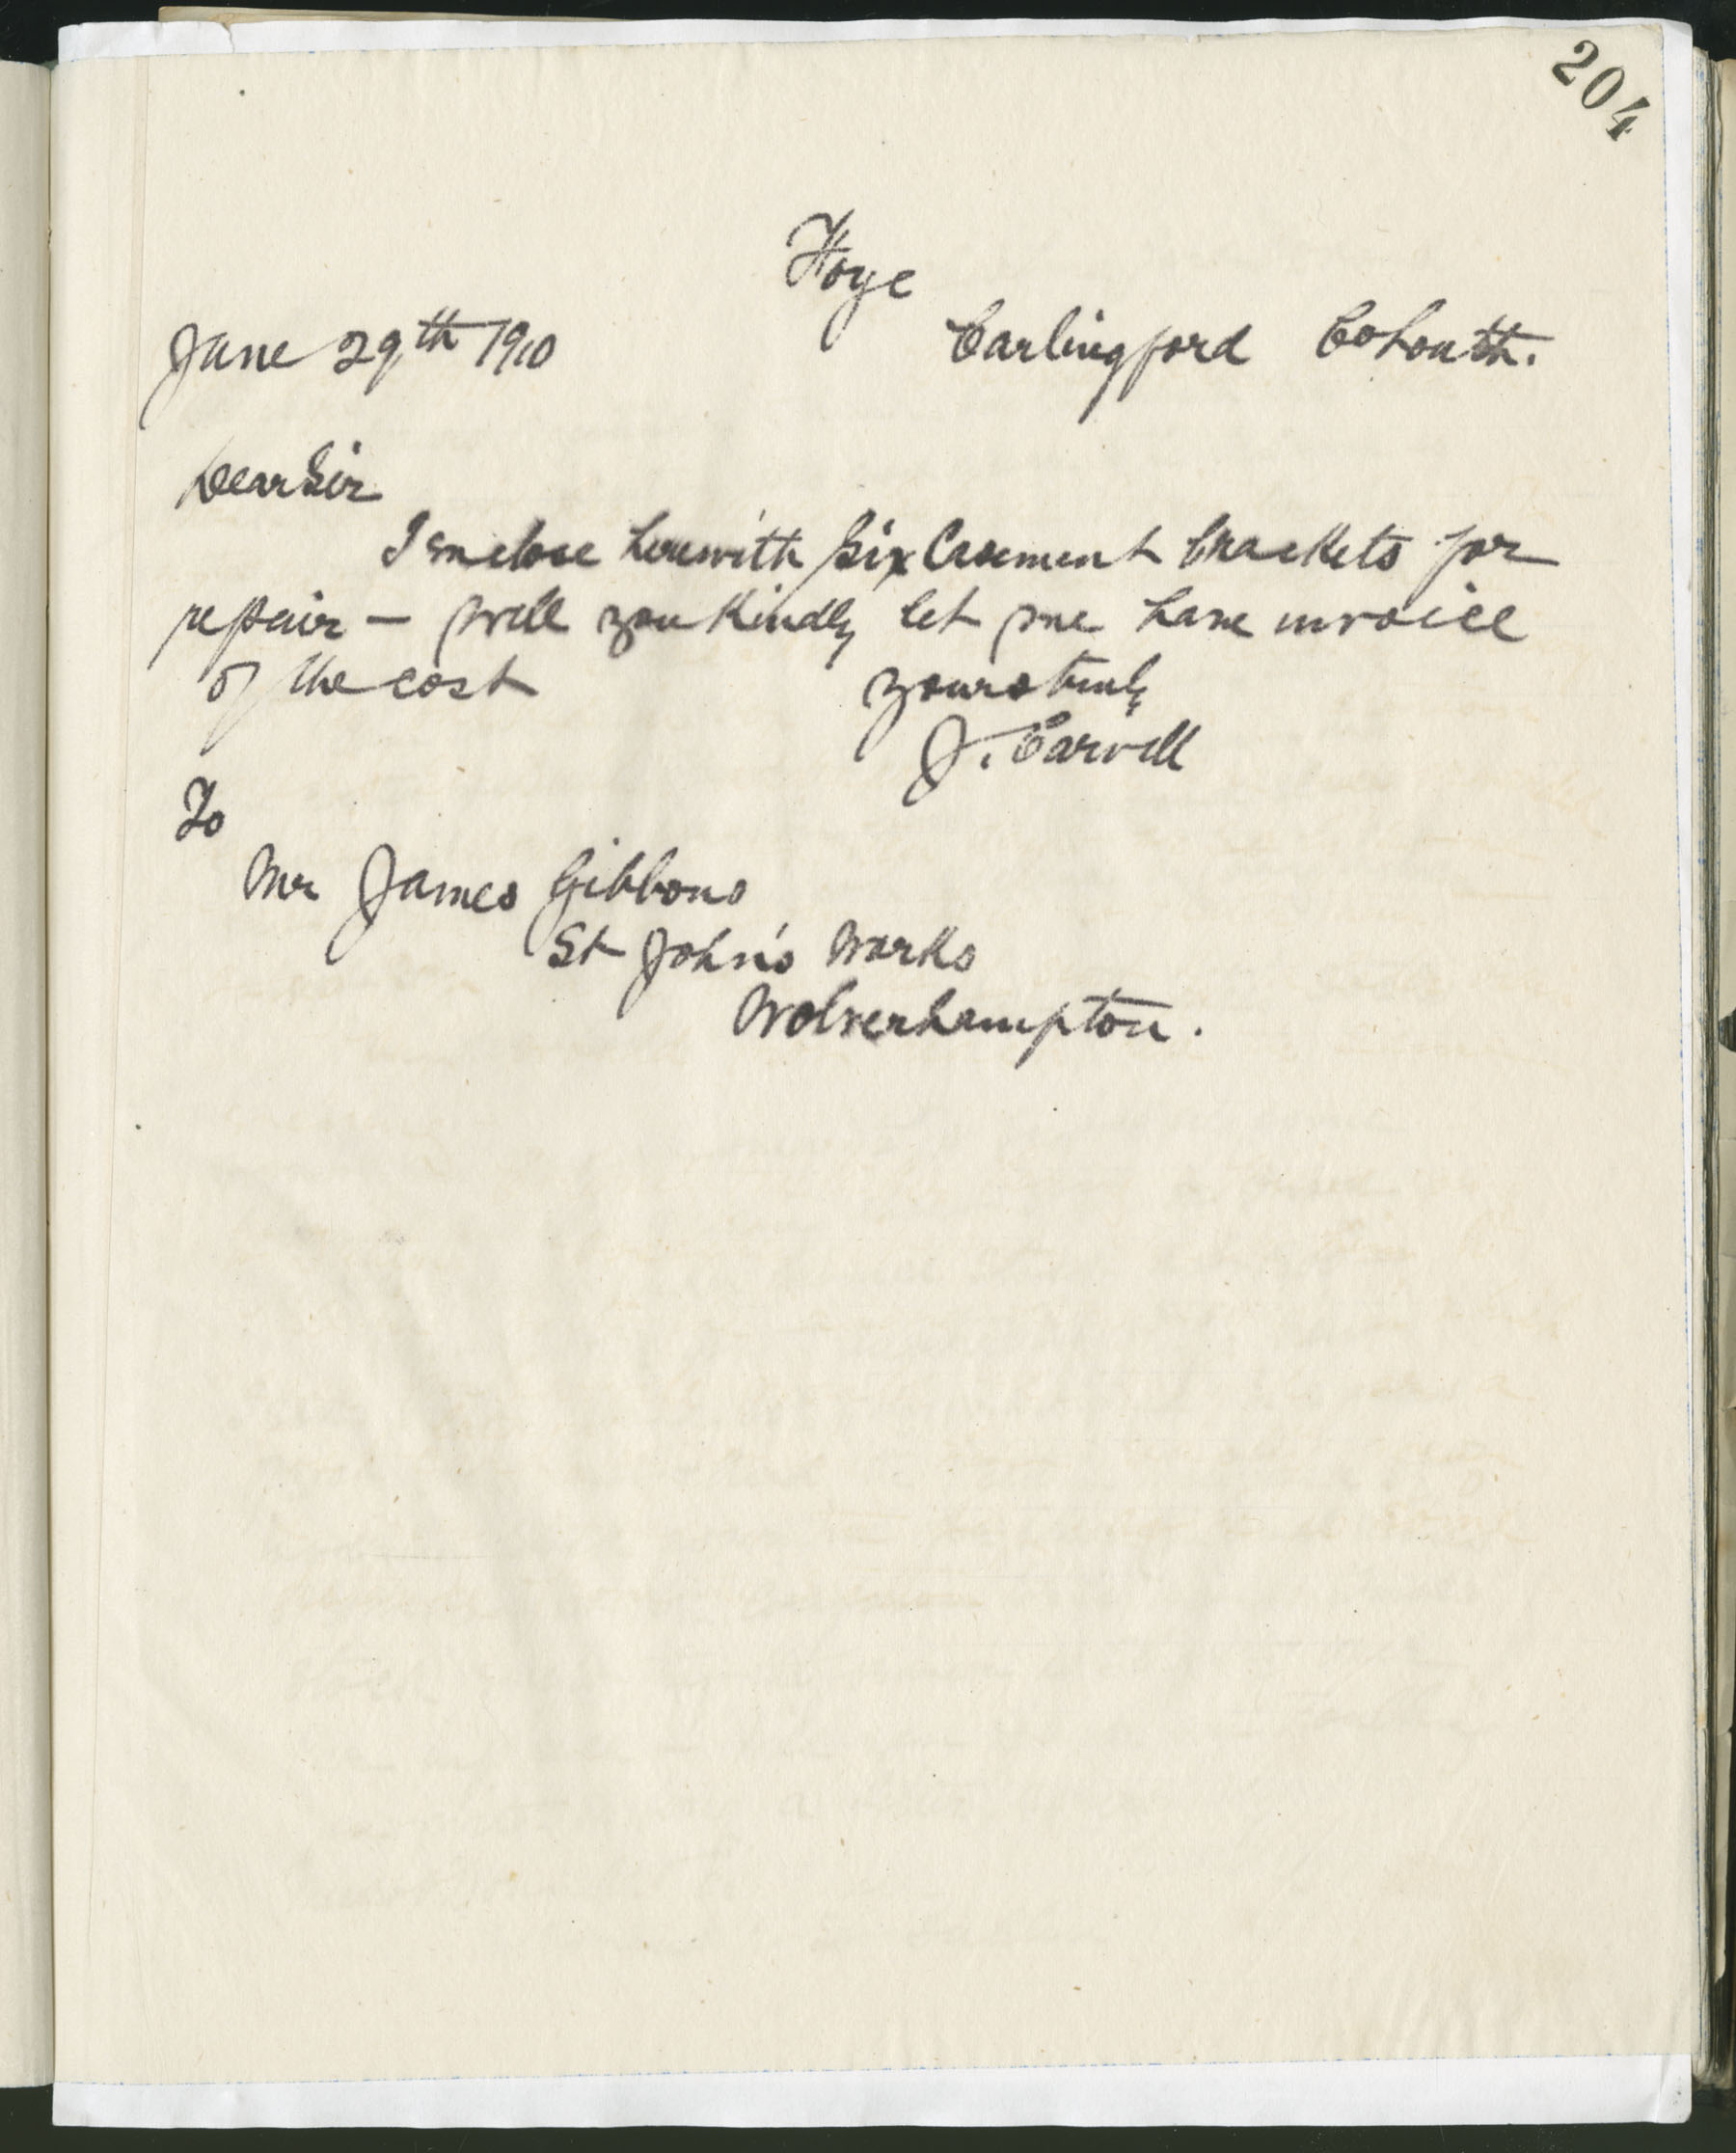 204
Hoye
June 29th 1910
Carlingford Co Louth.
Dear Sir
I enclose herewith Six Casement brackets for
repair — will you kindly let me have invoice
of the cost
yours truly
J. Carvill
To
Mr James Gibbons
St John's Works
Wolverhampton.